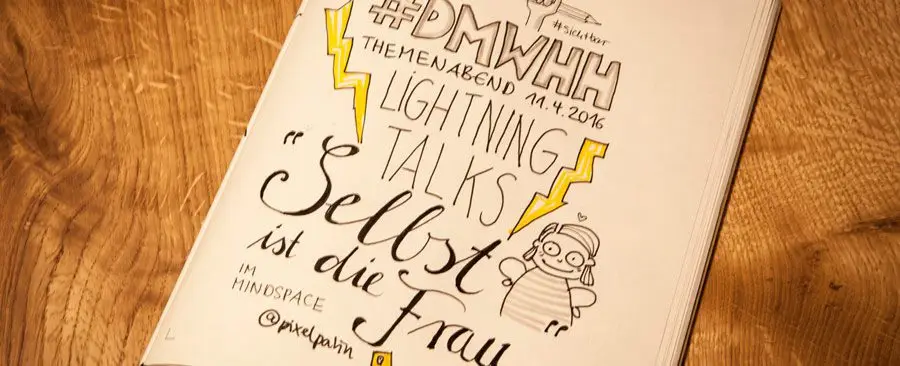 #sichtbar
#DMWHH
THEMENABEND 11.4.2016
LIGHTNING
TALKS
"Selbst
ist die Frau"
IM
MINDSPACE
@pixelpalin